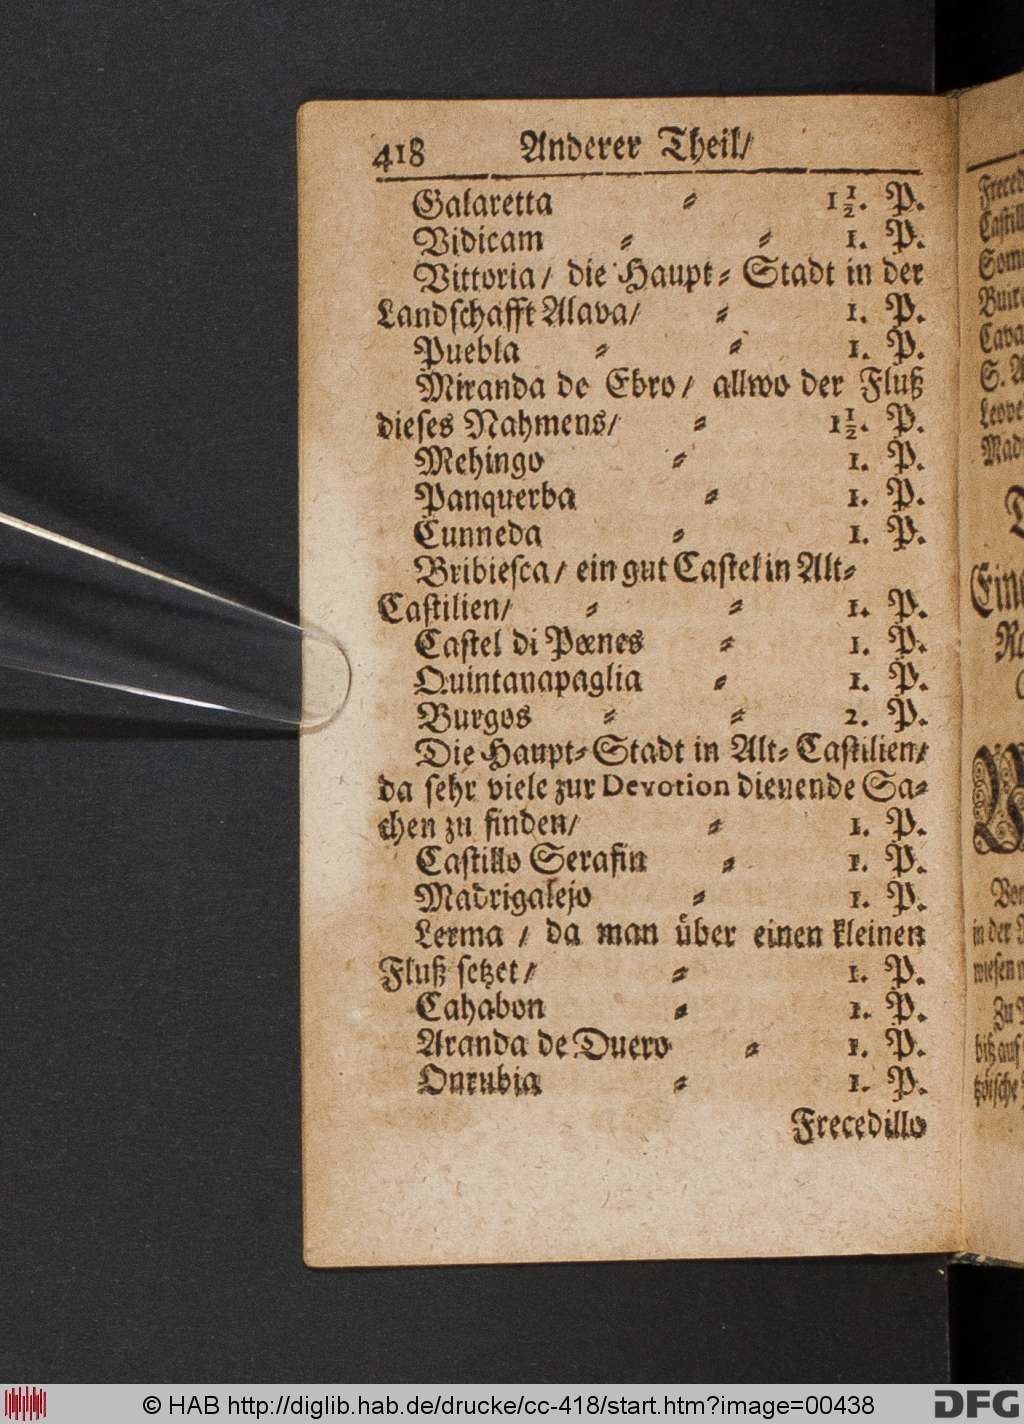 418 Anderer Theil/
Galaretta ⸗ 1 1/2. P.
Vidicam ⸗ ⸗ 1. P.
Vittoria/ die Haupt⸗Stadt in der
Landschafft Alava/ ⸗ 1. P.
Puebla ⸗ ⸗ 1. P.
Miranda de Ebro/ allwo der Fluß
dieses Nahmens/ ⸗ 1 1/2. P.
Mehingo ⸗ 1. P.
Panquerba ⸗ 1. P.
Cunneda ⸗ 1. P.
Bribiesca/ ein gut Castel in Alt⸗
Castilien/ ⸗ ⸗ 1. P.
Castel di Pœnes ⸗ 1. P.
Quintanapaglia ⸗ 1. P.
Burgos ⸗ ⸗ 2. P.
Die Haupt⸗Stadt in Alt⸗Castilien/
da sehr viele zur Devotion dienende Sa⸗
chen zu finden/ ⸗ 1. P.
Castillo Serafin ⸗ 1. P.
Madrigalejo ⸗ 1. P.
Lerma / da man über einen kleinen
Fluß setzet/ ⸗ 1. P.
Cahabon ⸗ 1. P.
Aranda de Duero ⸗ 1. P.
Onrubia ⸗ 1. P.
Frecedillo
© HAB http://diglib.hab.de/drucke/cc-418/start.htm?image=00438
DFG